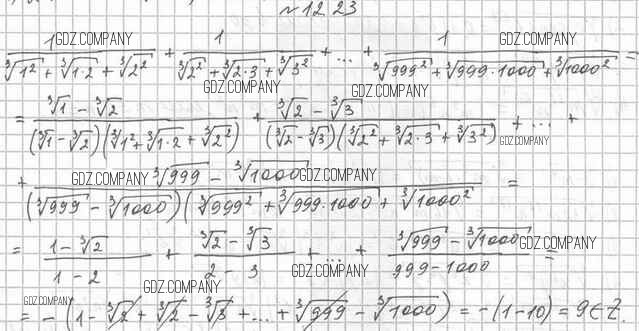 № 12.23
1/(∛1² + ∛1·2 + ∛2²) + 1/(∛2² + ∛2·3 + ∛3²) + ... + 1/(∛999² + ∛999·1000 + ∛1000²) =
= (∛1 - ∛2)/((∛1 - ∛2)(∛1² + ∛1·2 + ∛2²)) + (∛2 - ∛3)/((∛2 - ∛3)(∛2² + ∛2·3 + ∛3²)) + ... +
+ (∛999 - ∛1000)/((∛999 - ∛1000)(∛999² + ∛999·1000 + ∛1000²)) =
= (1 - ∛2)/(1 - 2) + (∛2 - ∛3)/(2 - 3) + ... + (∛999 - ∛1000)/(999 - 1000) =
= -(1 - ∛2 + ∛2 - ∛3 + ... + ∛999 - ∛1000) = -(1-10) = 9 ∈ Z.
GDZ.COMPANY
GDZ.COMPANY
GDZ.COMPANY
GDZ.COMPANY
GDZ.COMPANY
GDZ.COMPANY
GDZ.COMPANY
GDZ.COMPANY
GDZ.COMPANY
GDZ.COMPANY
GDZ.COMPANY